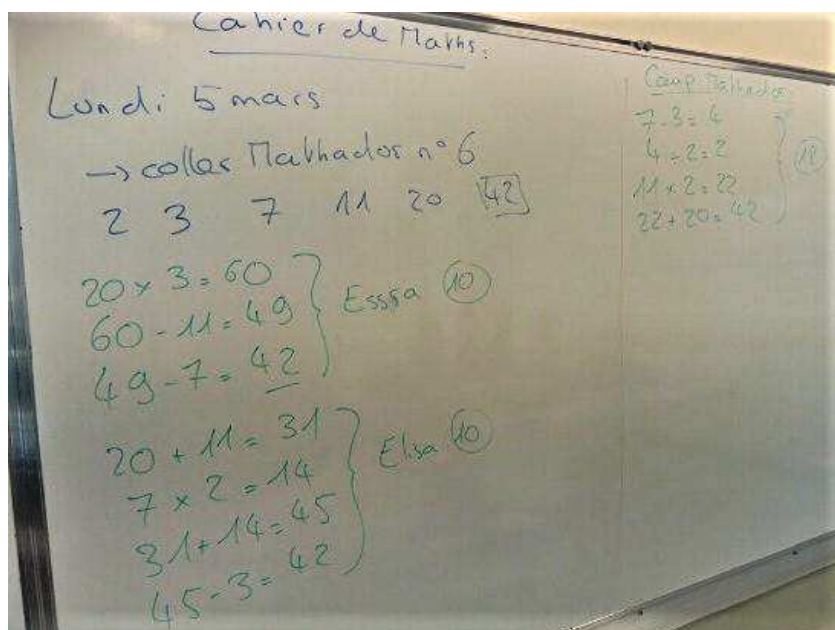 Cahier de Maths:
Lundi 5 mars
→ coller Mathador n° 6
2 3 7 11 20 42
20 × 3 = 60
60 - 11 = 49
49 - 7 = 42
Essra 10
20 + 11 = 31
7 × 2 = 14
31 + 14 = 45
45 - 3 = 42
Elisa 10
Coup Mathador
7 - 3 = 4
4 ÷ 2 = 2
11 × 2 = 22
22 + 20 = 42
18